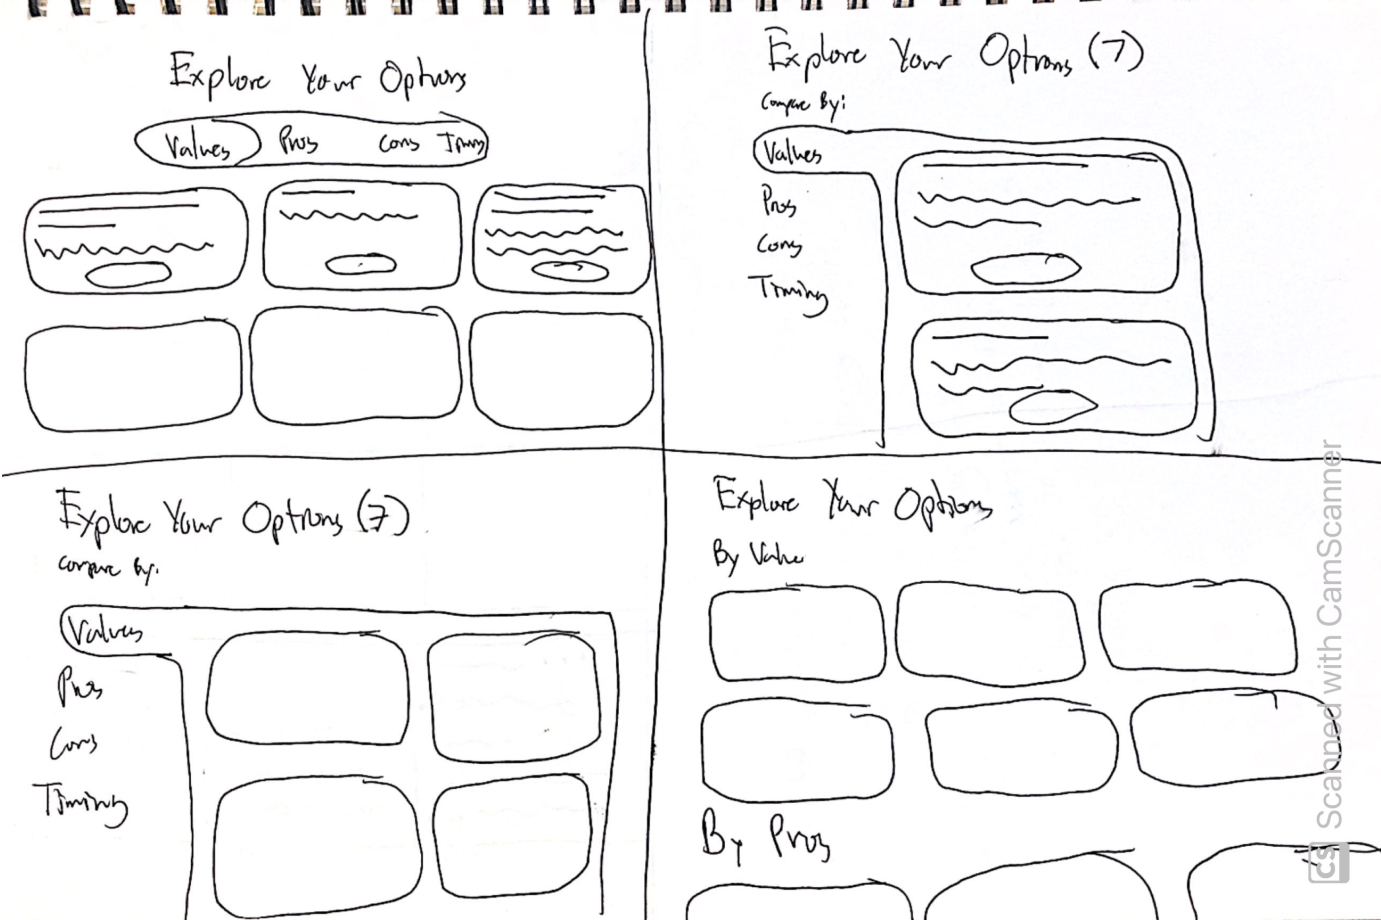 Explore Your Options
Values Pros Cons Timing
Explore Your Options (7)
Compare By:
Values
Pros
Cons
Timing
Explore Your Options (7)
Compare By:
Values
Pros
Cons
Timing
Explore Your Options
By Value
By Pros
CS Scanned with CamScanner